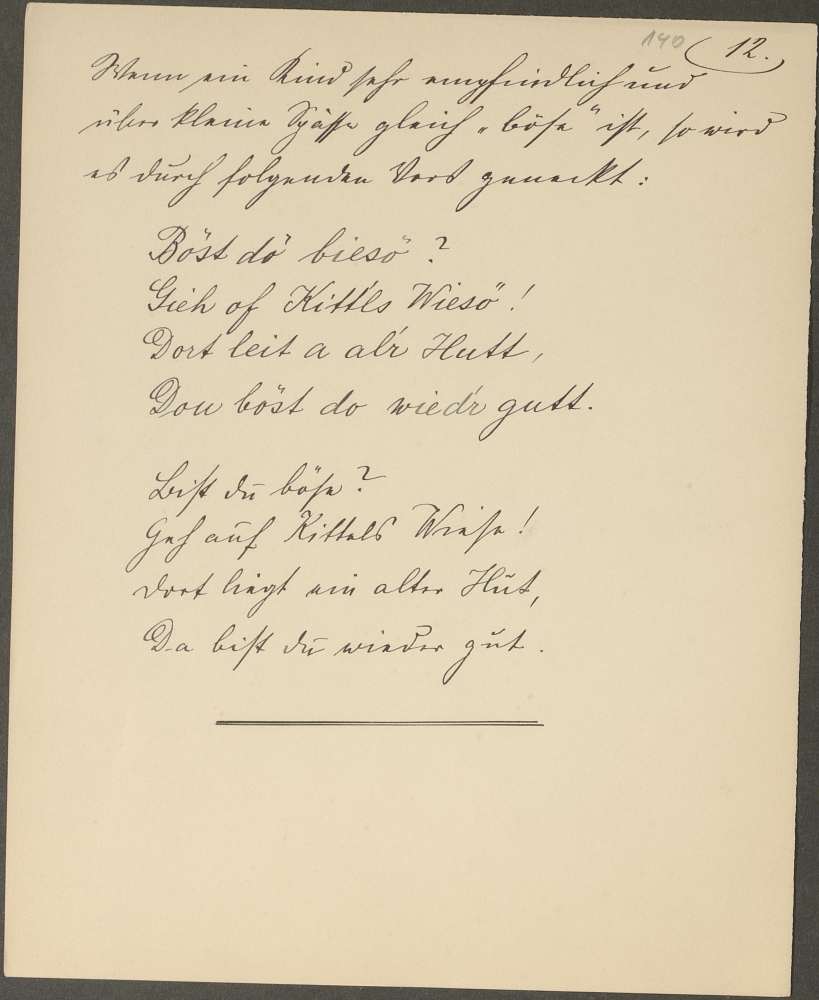 140 12.
Wenn ein Kind sehr empfindlich und
über kleine Späße gleich „böse“ ist, so wird
es durch folgenden Vers geneckt:
Böst dö biesö?
Gieh of Kitt'ls Wiesö!
Dort leit a al'r Hutt,
Dou böst do wied'r gutt.
Bist du böse?
Geh auf Kittels Wiese!
Dort liegt ein alter Hut,
Da bist du wieder gut.